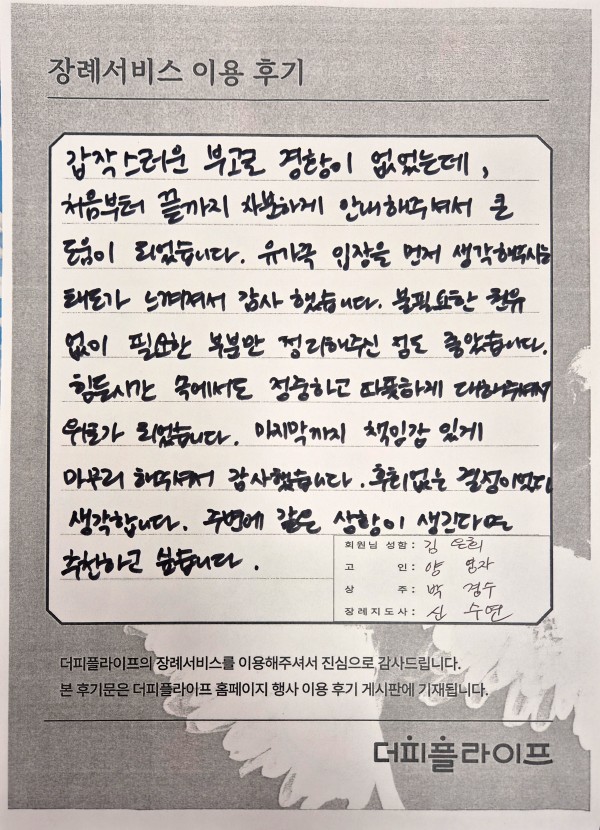 장례서비스 이용 후기
갑작스러운 부고로 경황이 없었는데,
처음부터 끝까지 차분하게 안내해주셔서 큰
도움이 되었습니다. 유가족 입장을 먼저 생각해주시는
태도가 느껴져서 감사 했습니다. 불필요한 권유
없이 필요한 부분만 정리해주신 점도 좋았습니다.
힘든시간 속에서도 정중하고 따뜻하게 대해주셔서
위로가 되었습니다. 마지막까지 책임감 있게
마무리 해주셔서 감사했습니다. 후회없는 결정이었다
생각합니다. 주변에 같은 상황이 생긴다면
추천하고 싶습니다.
회원님 성함 : 김 은희
고 인 : 양 영자
상 주 : 박 경수
장례지도사 : 신 수연
더피플라이프의 장례서비스를 이용해주셔서 진심으로 감사드립니다.
본 후기문은 더피플라이프 홈페이지 행사 이용 후기 게시판에 기재됩니다.
더피플라이프